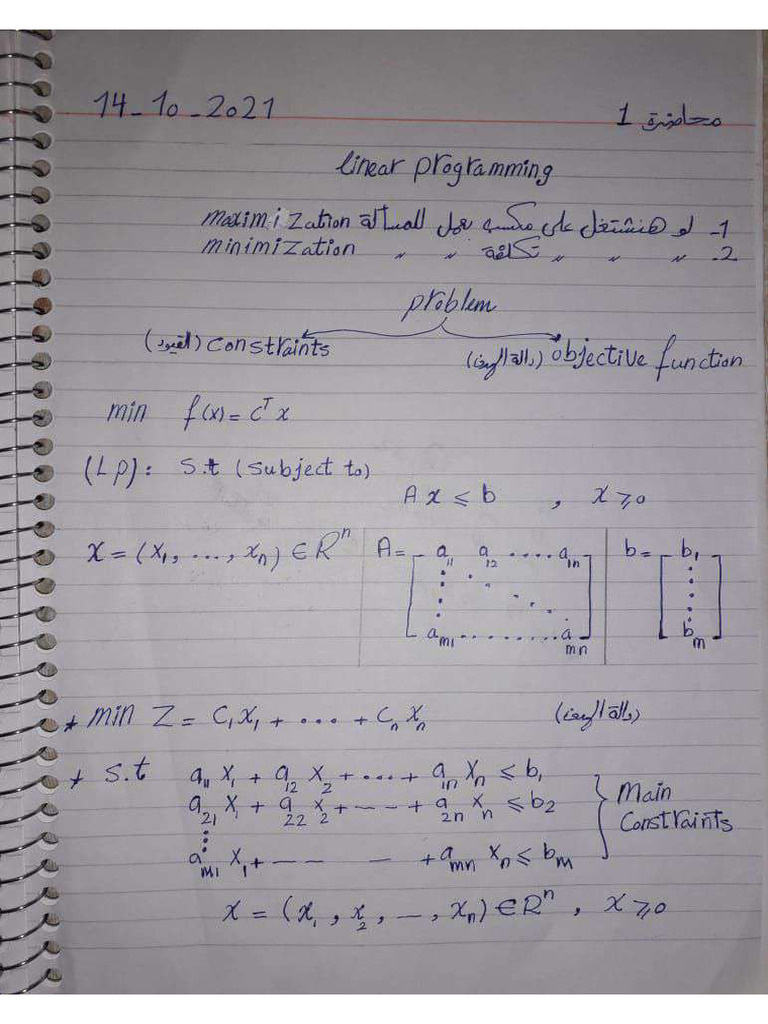 14-10-2021 محاضرة 1
linear programming
1- لو هنشتغل على مكسب يعمل للمسألة maximization
2- " " " تكلفة " " minimization
problem
(القيود) constraints (دالة الهدف) objective function
min f(x) = cᵀx
(Lp): S.t (Subject to)
Ax ≤ b , x ≥ 0
x = (x₁, ..., xₙ) ∈ Rⁿ | A = [ a₁₁ a₁₂ .... a₁ₙ | b = [ b₁
aₘ₁ ........ aₘₙ ] | bₘ ]
* min Z = C₁X₁ + ... + CₙXₙ (دالة الهدف)
* S.t a₁₁ X₁ + a₁₂ X₂ + ... + a₁ₙ Xₙ ≤ b₁
a₂₁ X₁ + a₂₂ X₂ + -- + a₂ₙ Xₙ ≤ b₂ } Main Constraints
⋮
aₘ₁ X₁ + -- - + aₘₙ Xₙ ≤ bₘ
X = (X₁, X₂, -, Xₙ) ∈ Rⁿ , X ≥ 0